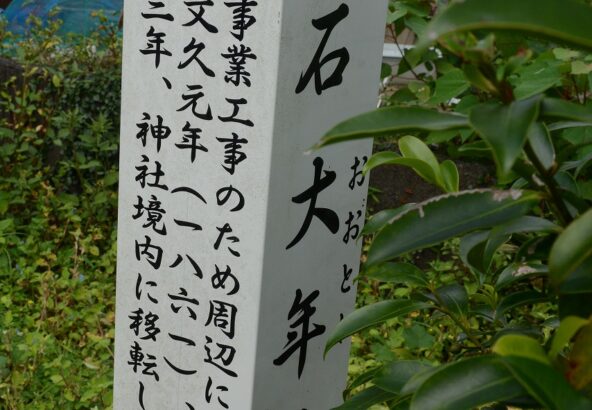 石大年
おおと
事業工事のため周辺に
文久元年（一八六一）、
三年、神社境内に移転し